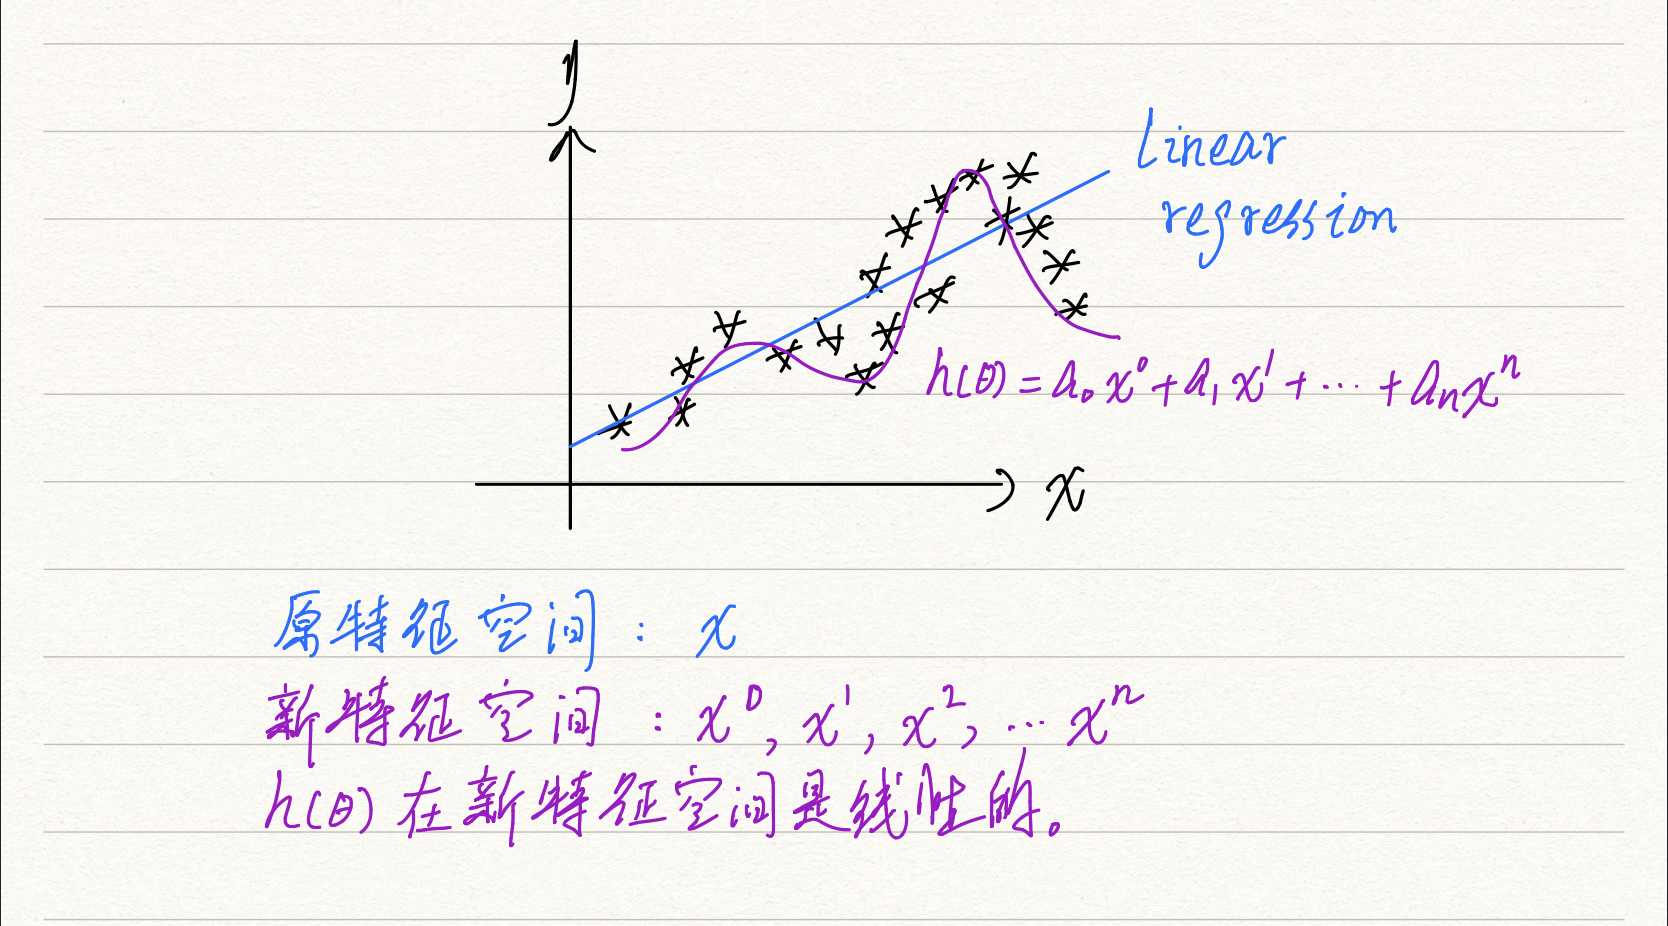 y
Linear
regression
h(θ) = a₀x⁰ + a₁x¹ + ... + aₙxⁿ
x
原特征空间: x
新特征空间: x⁰, x¹, x², ... xⁿ
h(θ) 在新特征空间是线性的。